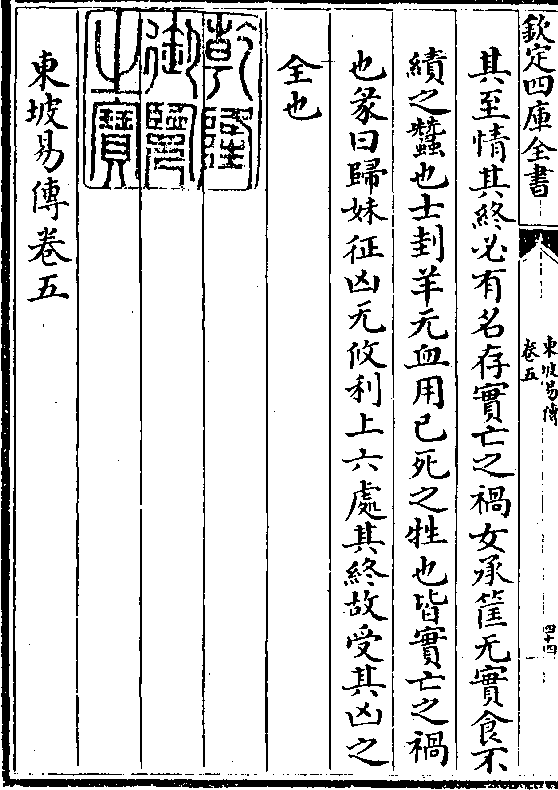 欽定四庫全書
東坡易傳
卷五
四十四
其至情其終必有名存實亡之禍女承筐无實食不
績之蠶也士刲羊无血用已死之牲也皆實亡之禍
也彖曰歸妹征凶无攸利上六處其終故受其凶之
全也
乾隆
御覽
之寶
東坡易傳卷五